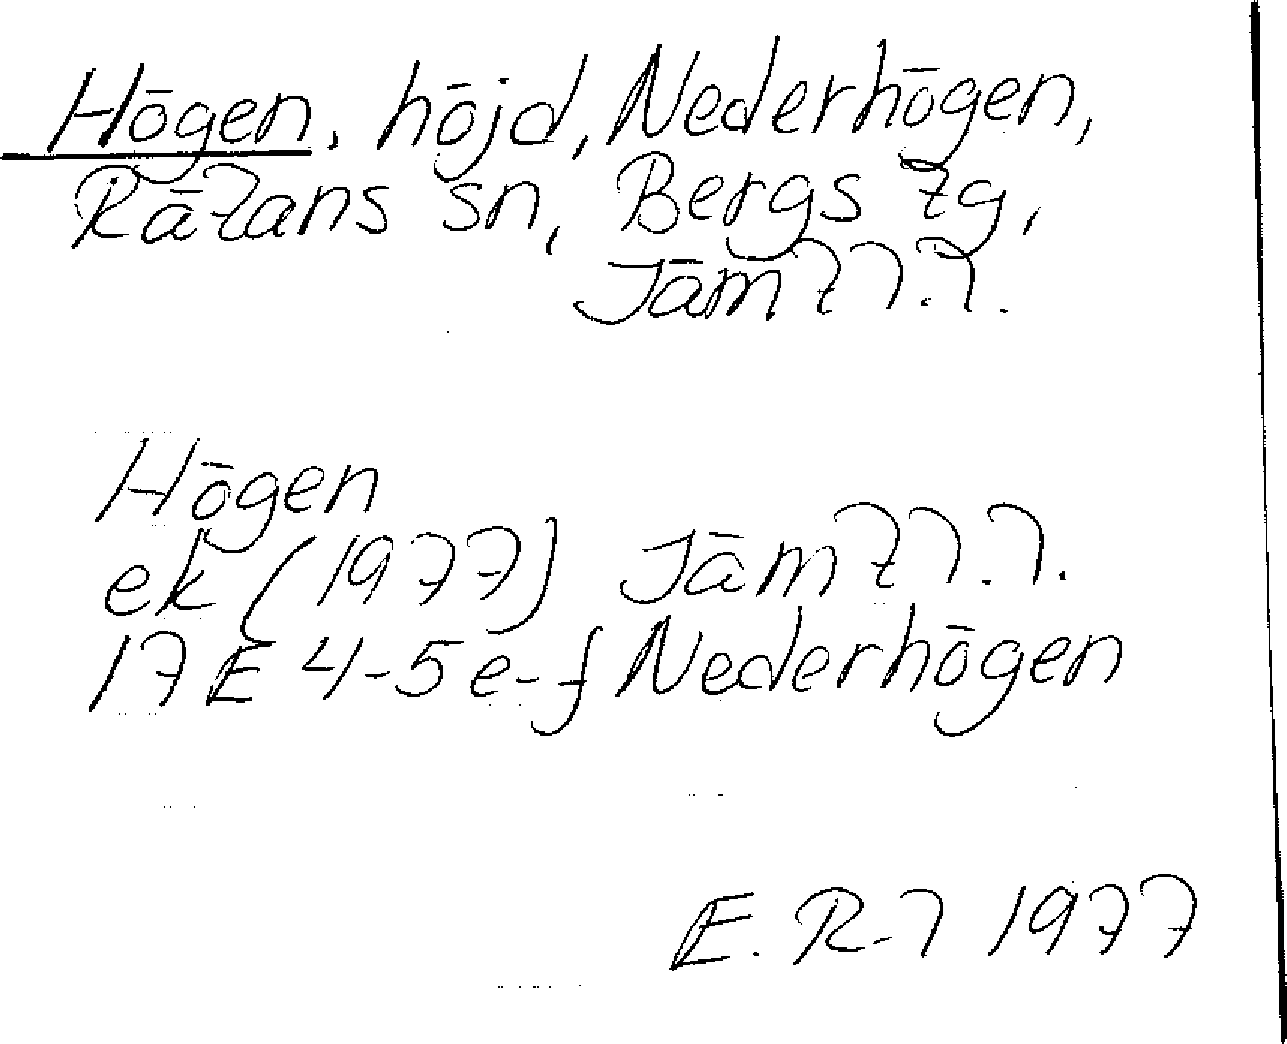 Högen, höjd, Nederhögen,
Rätans sn, Bergs tg,
Jämtl.l.
Högen
ek (1977) Jämtl.l.
17E 4-5 e-f Nederhögen
E. R-l 1977